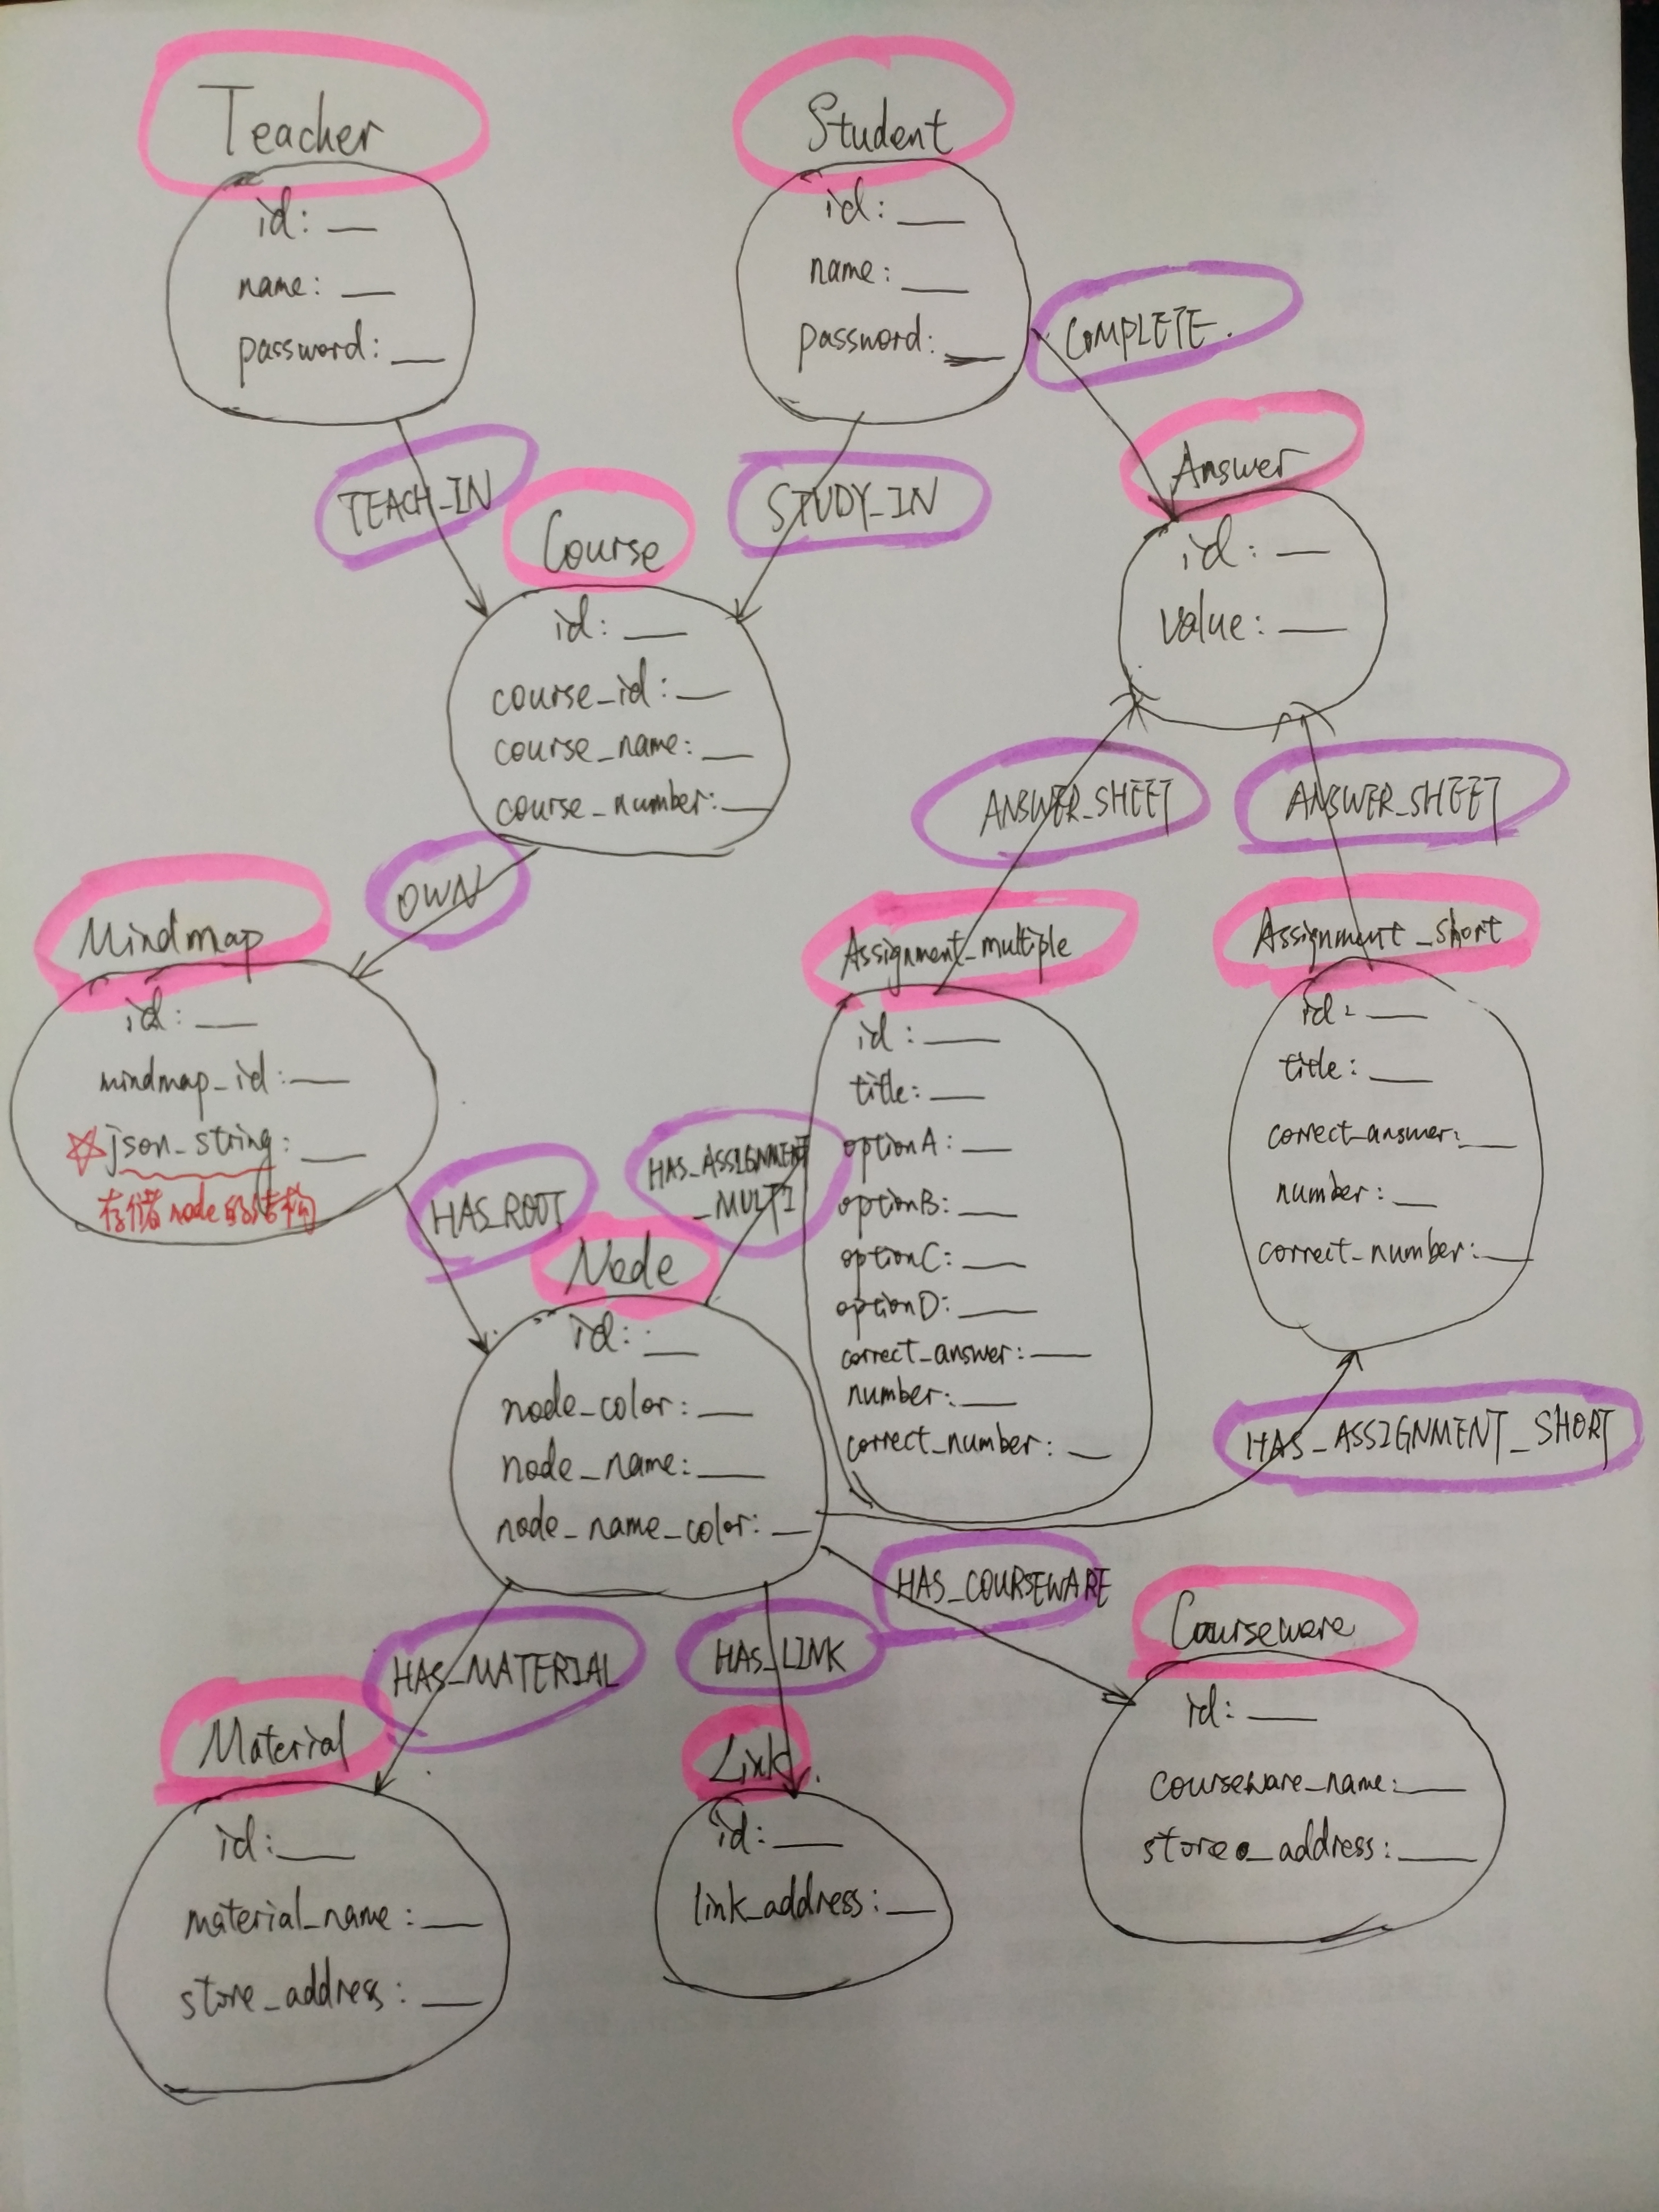 Teacher
id: __
name: __
password: __
Student
id: __
name: __
password: __
COMPLETE.
TEACH_IN
STUDY_IN
Course
id: __
course_id: __
course_name: __
course_number: __
Answer
id: __
value: __
OWN
ANSWER_SHEET
ANSWER_SHEET
Mindmap
id: __
mindmap_id: __
☆json_string: __
存储node的结构
Assignment_multiple
id: __
title: __
optionA: __
optionB: __
optionC: __
optionD: __
correct_answer: __
number: __
correct_number: __
Assignment_short
id: __
title: __
correct_answer: __
number: __
correct_number: __
HAS_ROOT
HAS_ASSIGNMENT
_MULTI
Node
id: __
node_color: __
node_name: __
node_name_color: __
HAS_ASSIGNMENT_SHORT
HAS_COURSEWARE
HAS_MATERIAL
HAS_LINK
Courseware
id: __
courseware_name: __
store_address: __
Material
id: __
material_name: __
store_address: __
Link.
id: __
link_address: __